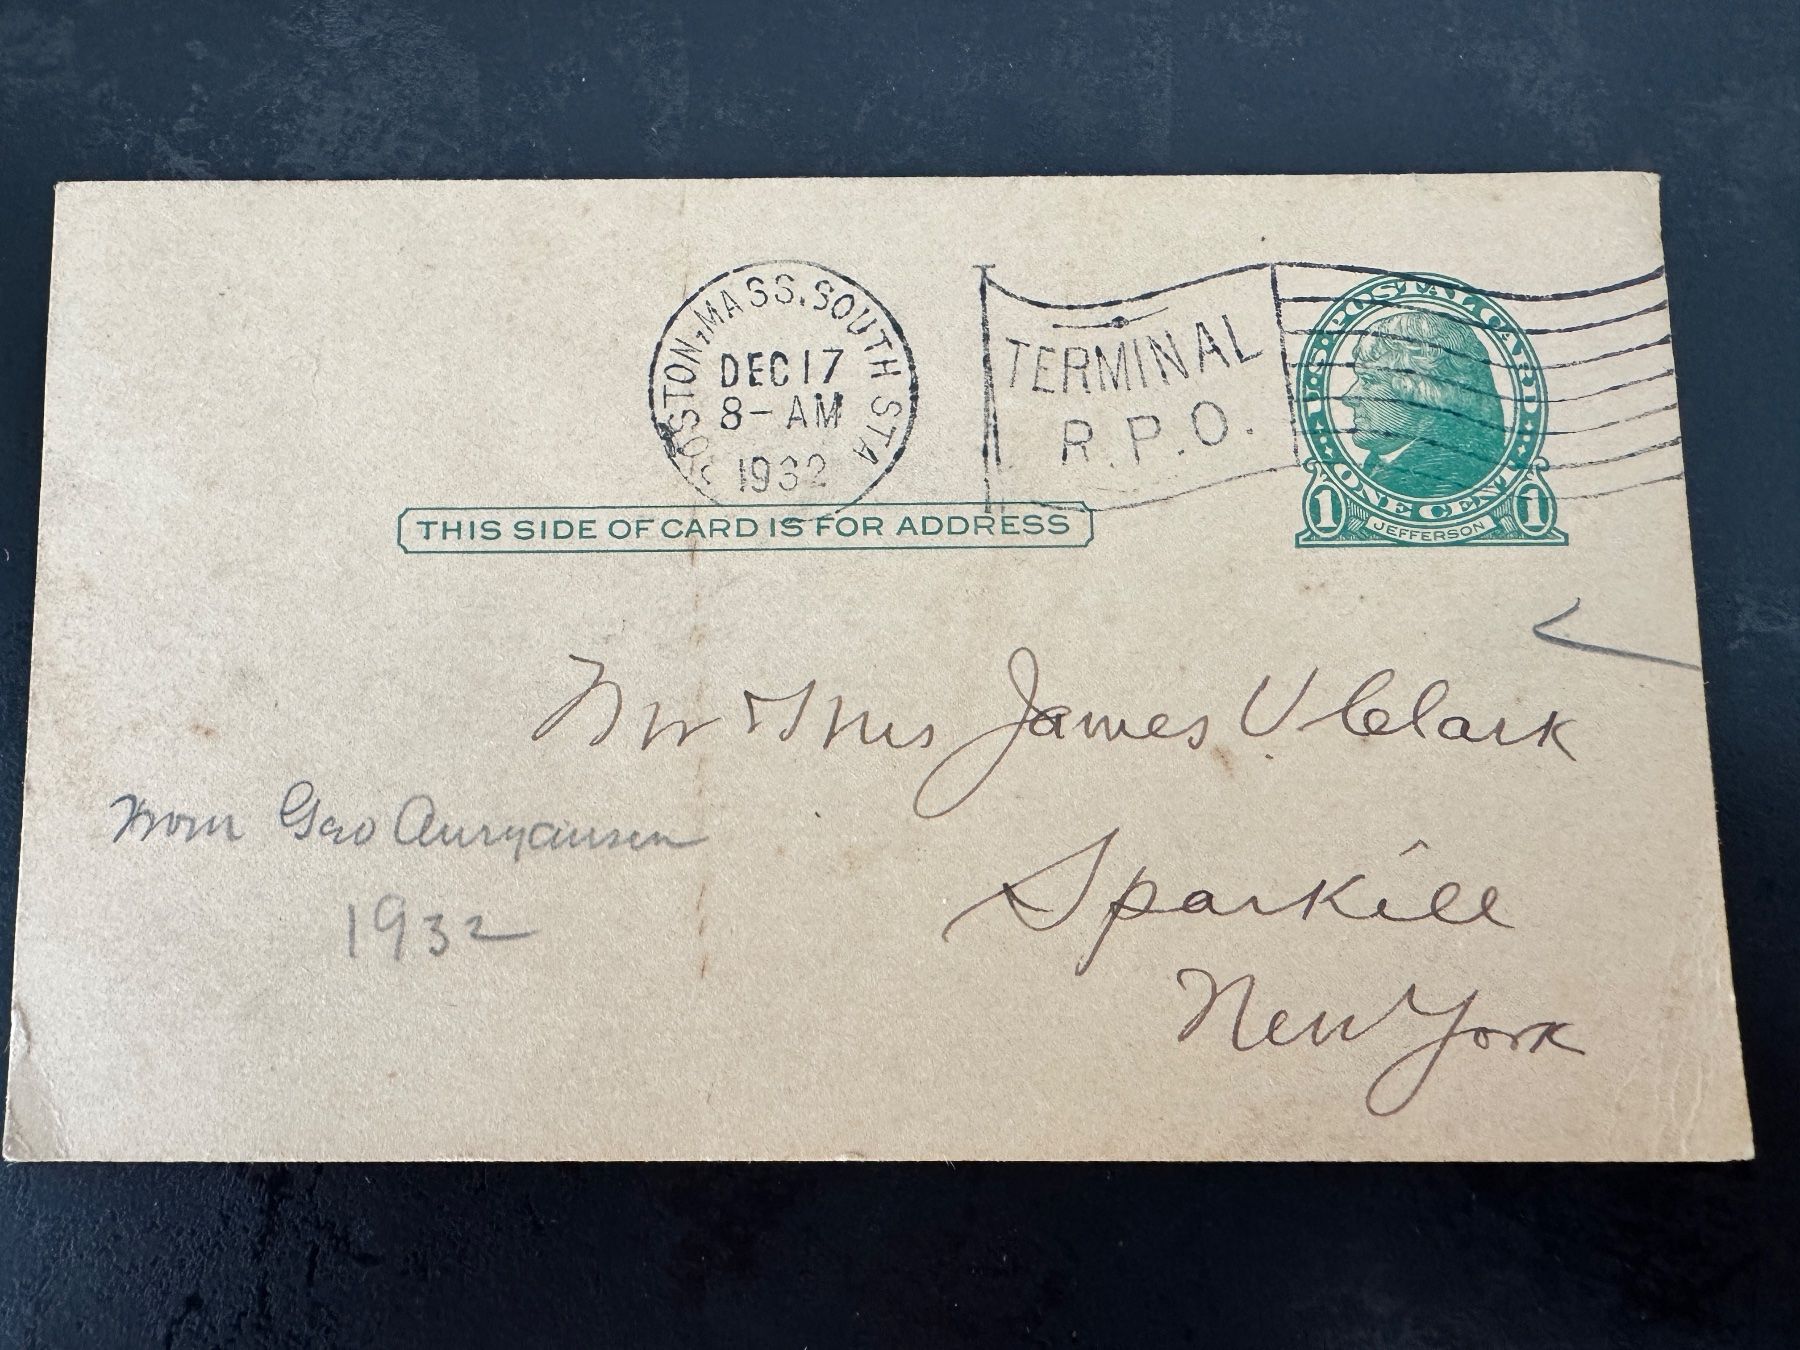 BOSTON, MASS. SOUTH STA
DEC 17
8- AM
1932
TERMINAL
R.P.O.
U.S. POSTAL CARD
ONE CENT
1 JEFFERSON 1
THIS SIDE OF CARD IS FOR ADDRESS
Mr & Mrs James V. Clark
Sparkill
New York
from Geo
1932